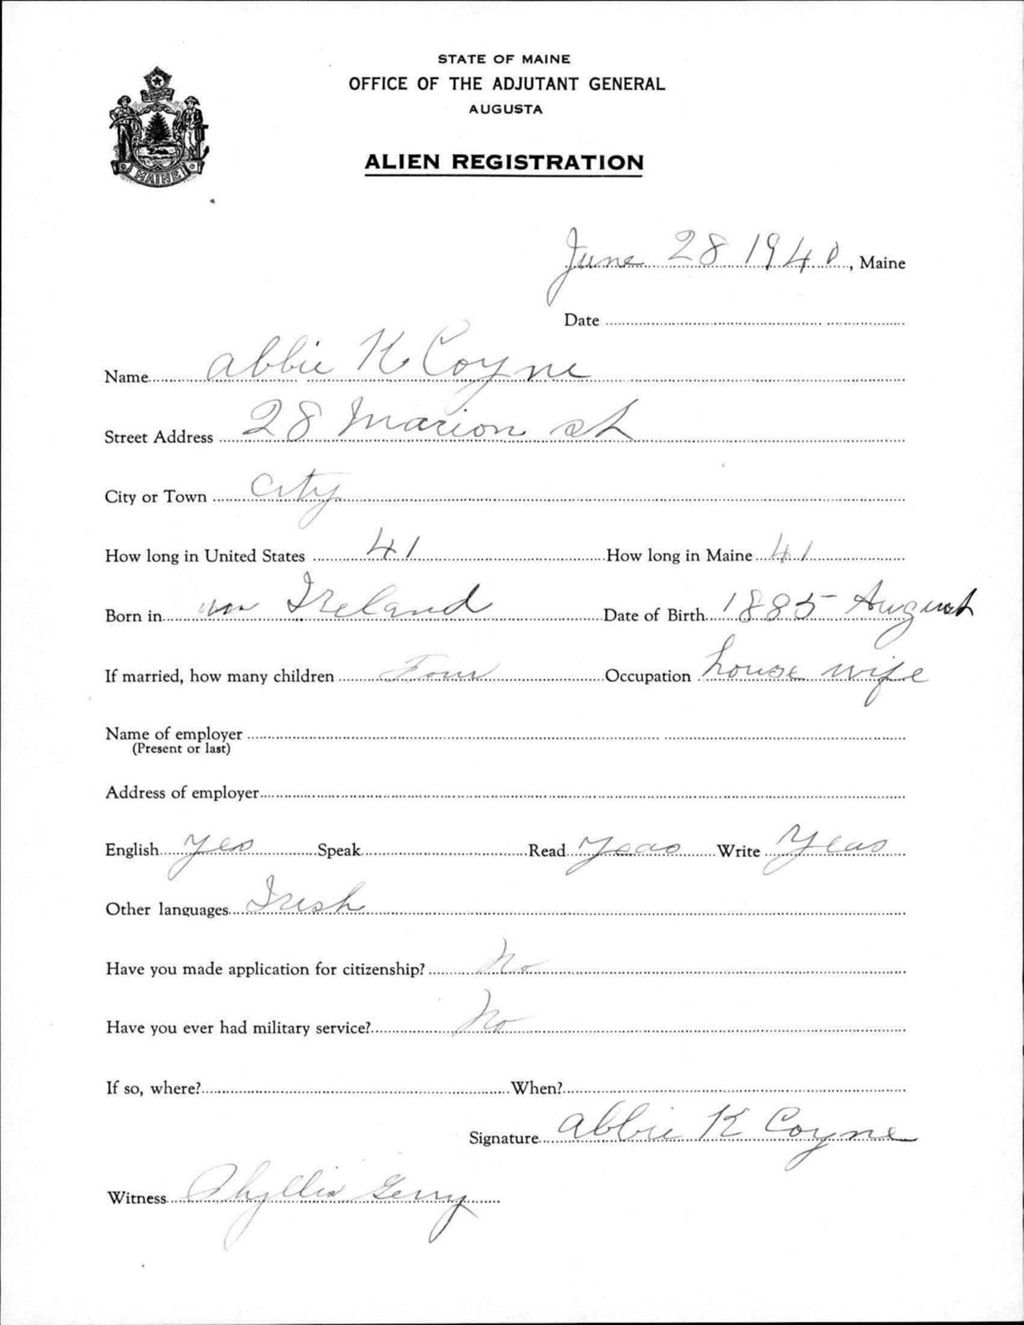 STATE OF MAINE
OFFICE OF THE ADJUTANT GENERAL
AUGUSTA
ALIEN REGISTRATION
MAINE
June 28 1940, Maine
Date
Name Abbie K Coyne
Street Address 28 Marion st
City or Town City
How long in United States 41 How long in Maine 41
Born in Ireland Date of Birth 1885 August
If married, how many children Four Occupation house wife
Name of employer
(Present or last)
Address of employer
English yes Speak Read Yeas Write Yeas
Other languages Irish
Have you made application for citizenship? No
Have you ever had military service? No
If so, where? When?
Signature Abbie K Coyne
Witness Phyllis Gerry